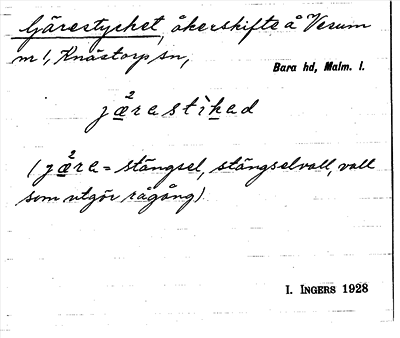 Gärestycket, åkerskifte å Vesum
m !, Knästorps sn,
Bara hd, Malm. l.
2
jærastikad
2
(jæra = stängsel, stängselvall, vall
som utgör rågång)
I. INGERS 1928